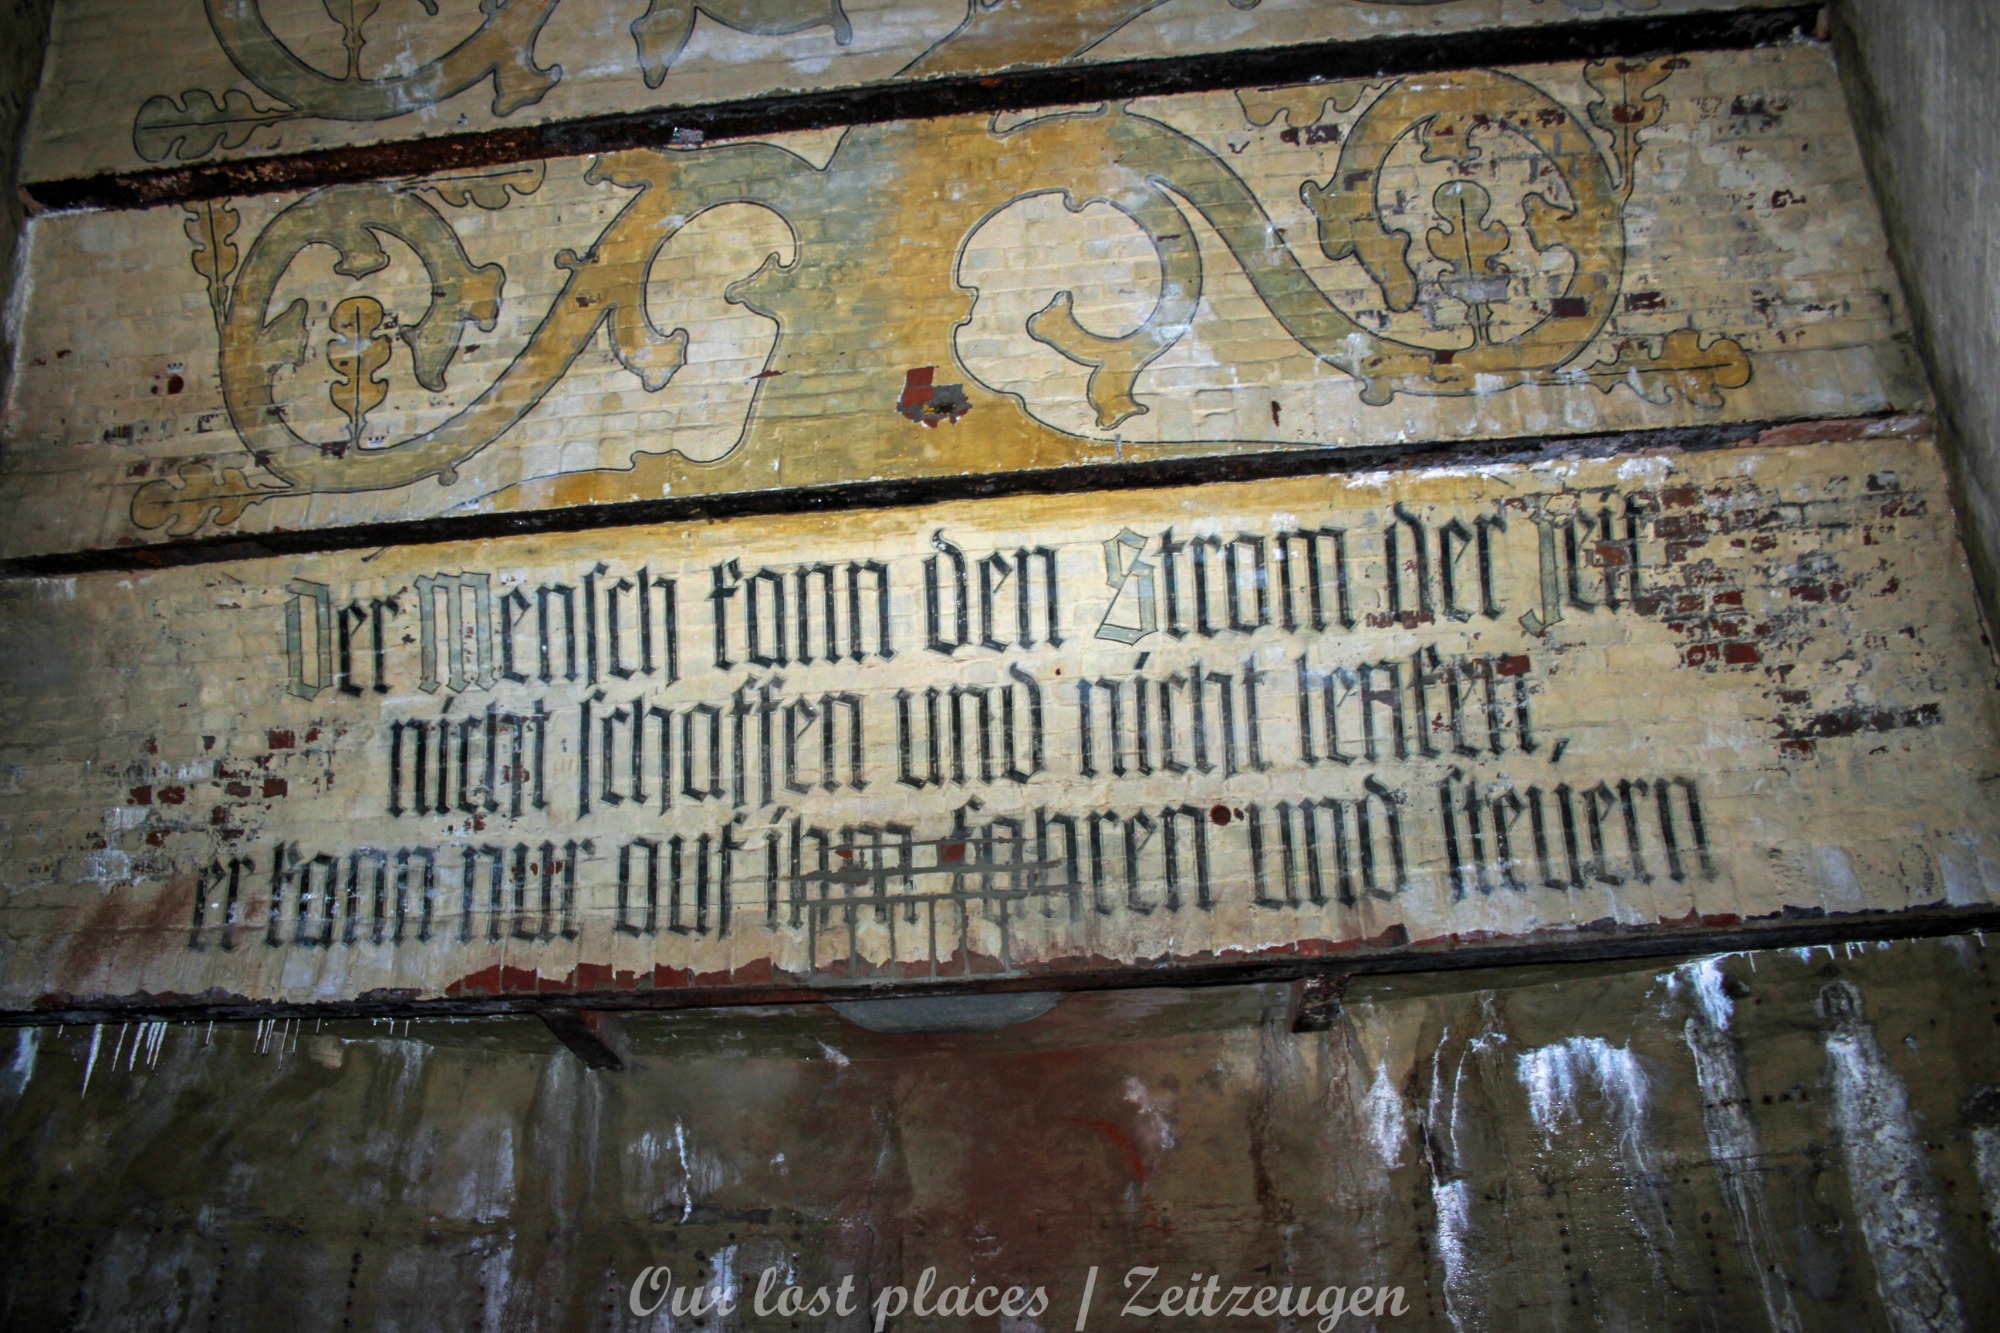 Der Mensch kann den Strom der Zeit
nicht schaffen und nicht lenken,
er kann nur auf ihm fahren und steuern
Our lost places / Zeitzeugen